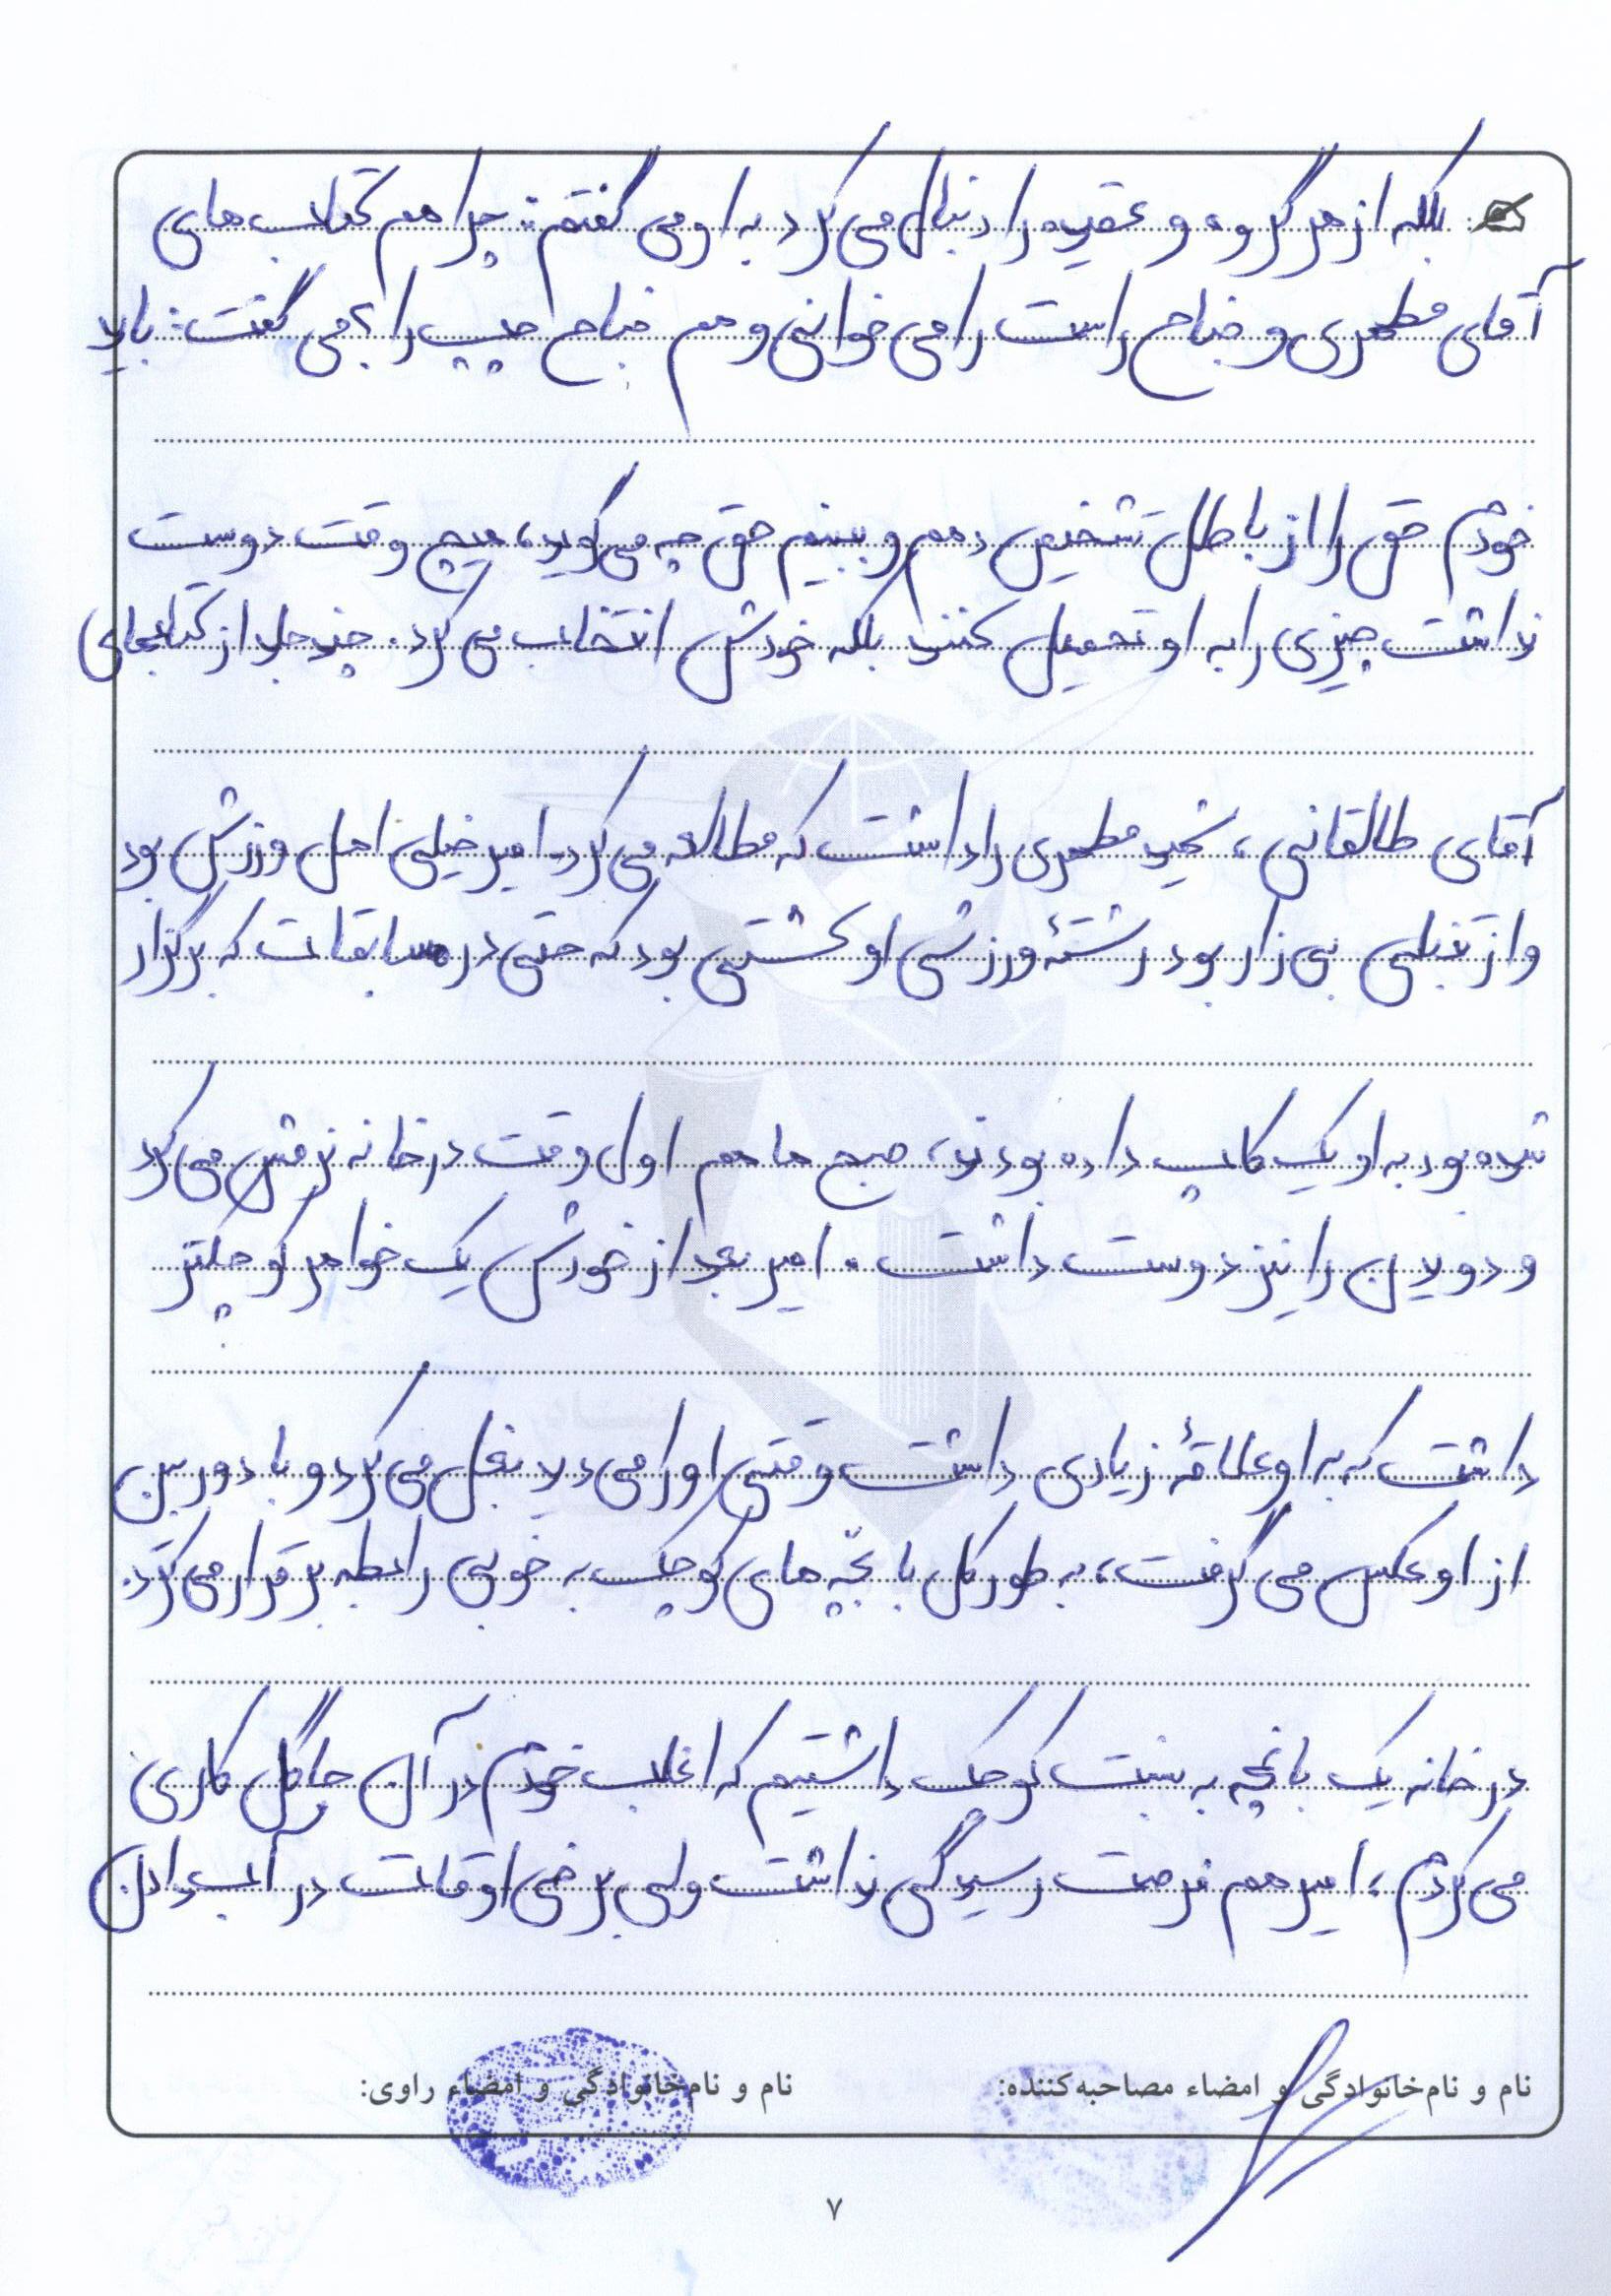 بلکه از هر گروه و عقیده را دنبال می کرد به او می گفتم: چرا هم کتاب های
آقای مطهری و جناح راست را می خوانی و هم جناح چپ را؟ می گفت: باید
خودم حق را از باطل تشخیص دهم و ببینم حق چه می گوید، هیچ وقت دوست
نداشت چیزی را به او تحمیل کنند بلکه خودش انتخاب می کرد. چند جلد از کتابهای
آقای طالقانی، شهید مطهری را داشت که مطالعه می کرد. امیر خیلی اهل ورزش بود
و از تنبلی بی زار بود رشتهٔ ورزشی او کشتی بود که حتی در مسابقات که برگزار
شده بود به او یک کاپ داده بودند، صبح ها هم اول وقت در خانه نرمش می کرد
و دویدن را نیز دوست داشت. امیر بعد از خودش یک خواهر کوچکتر
داشت که به او علاقهٔ زیادی داشت وقتی او را می دید بغل می کرد و با دوربین
از او عکس می گرفت، به طور کل با بچّه های کوچک به خوبی رابطه برقرار می کرد.
در خانه یک باغچه به نسبت کوچک داشتیم که اغلب خودم در آن جا گل کاری
می کردم، امیر هم فرصت رسیدگی نداشت ولی برخی اوقات در آب دادن
نام و نام‌خانوادگی و امضاء مصاحبه‌کننده: نام و نام‌خانوادگی و امضاء راوی:
۷